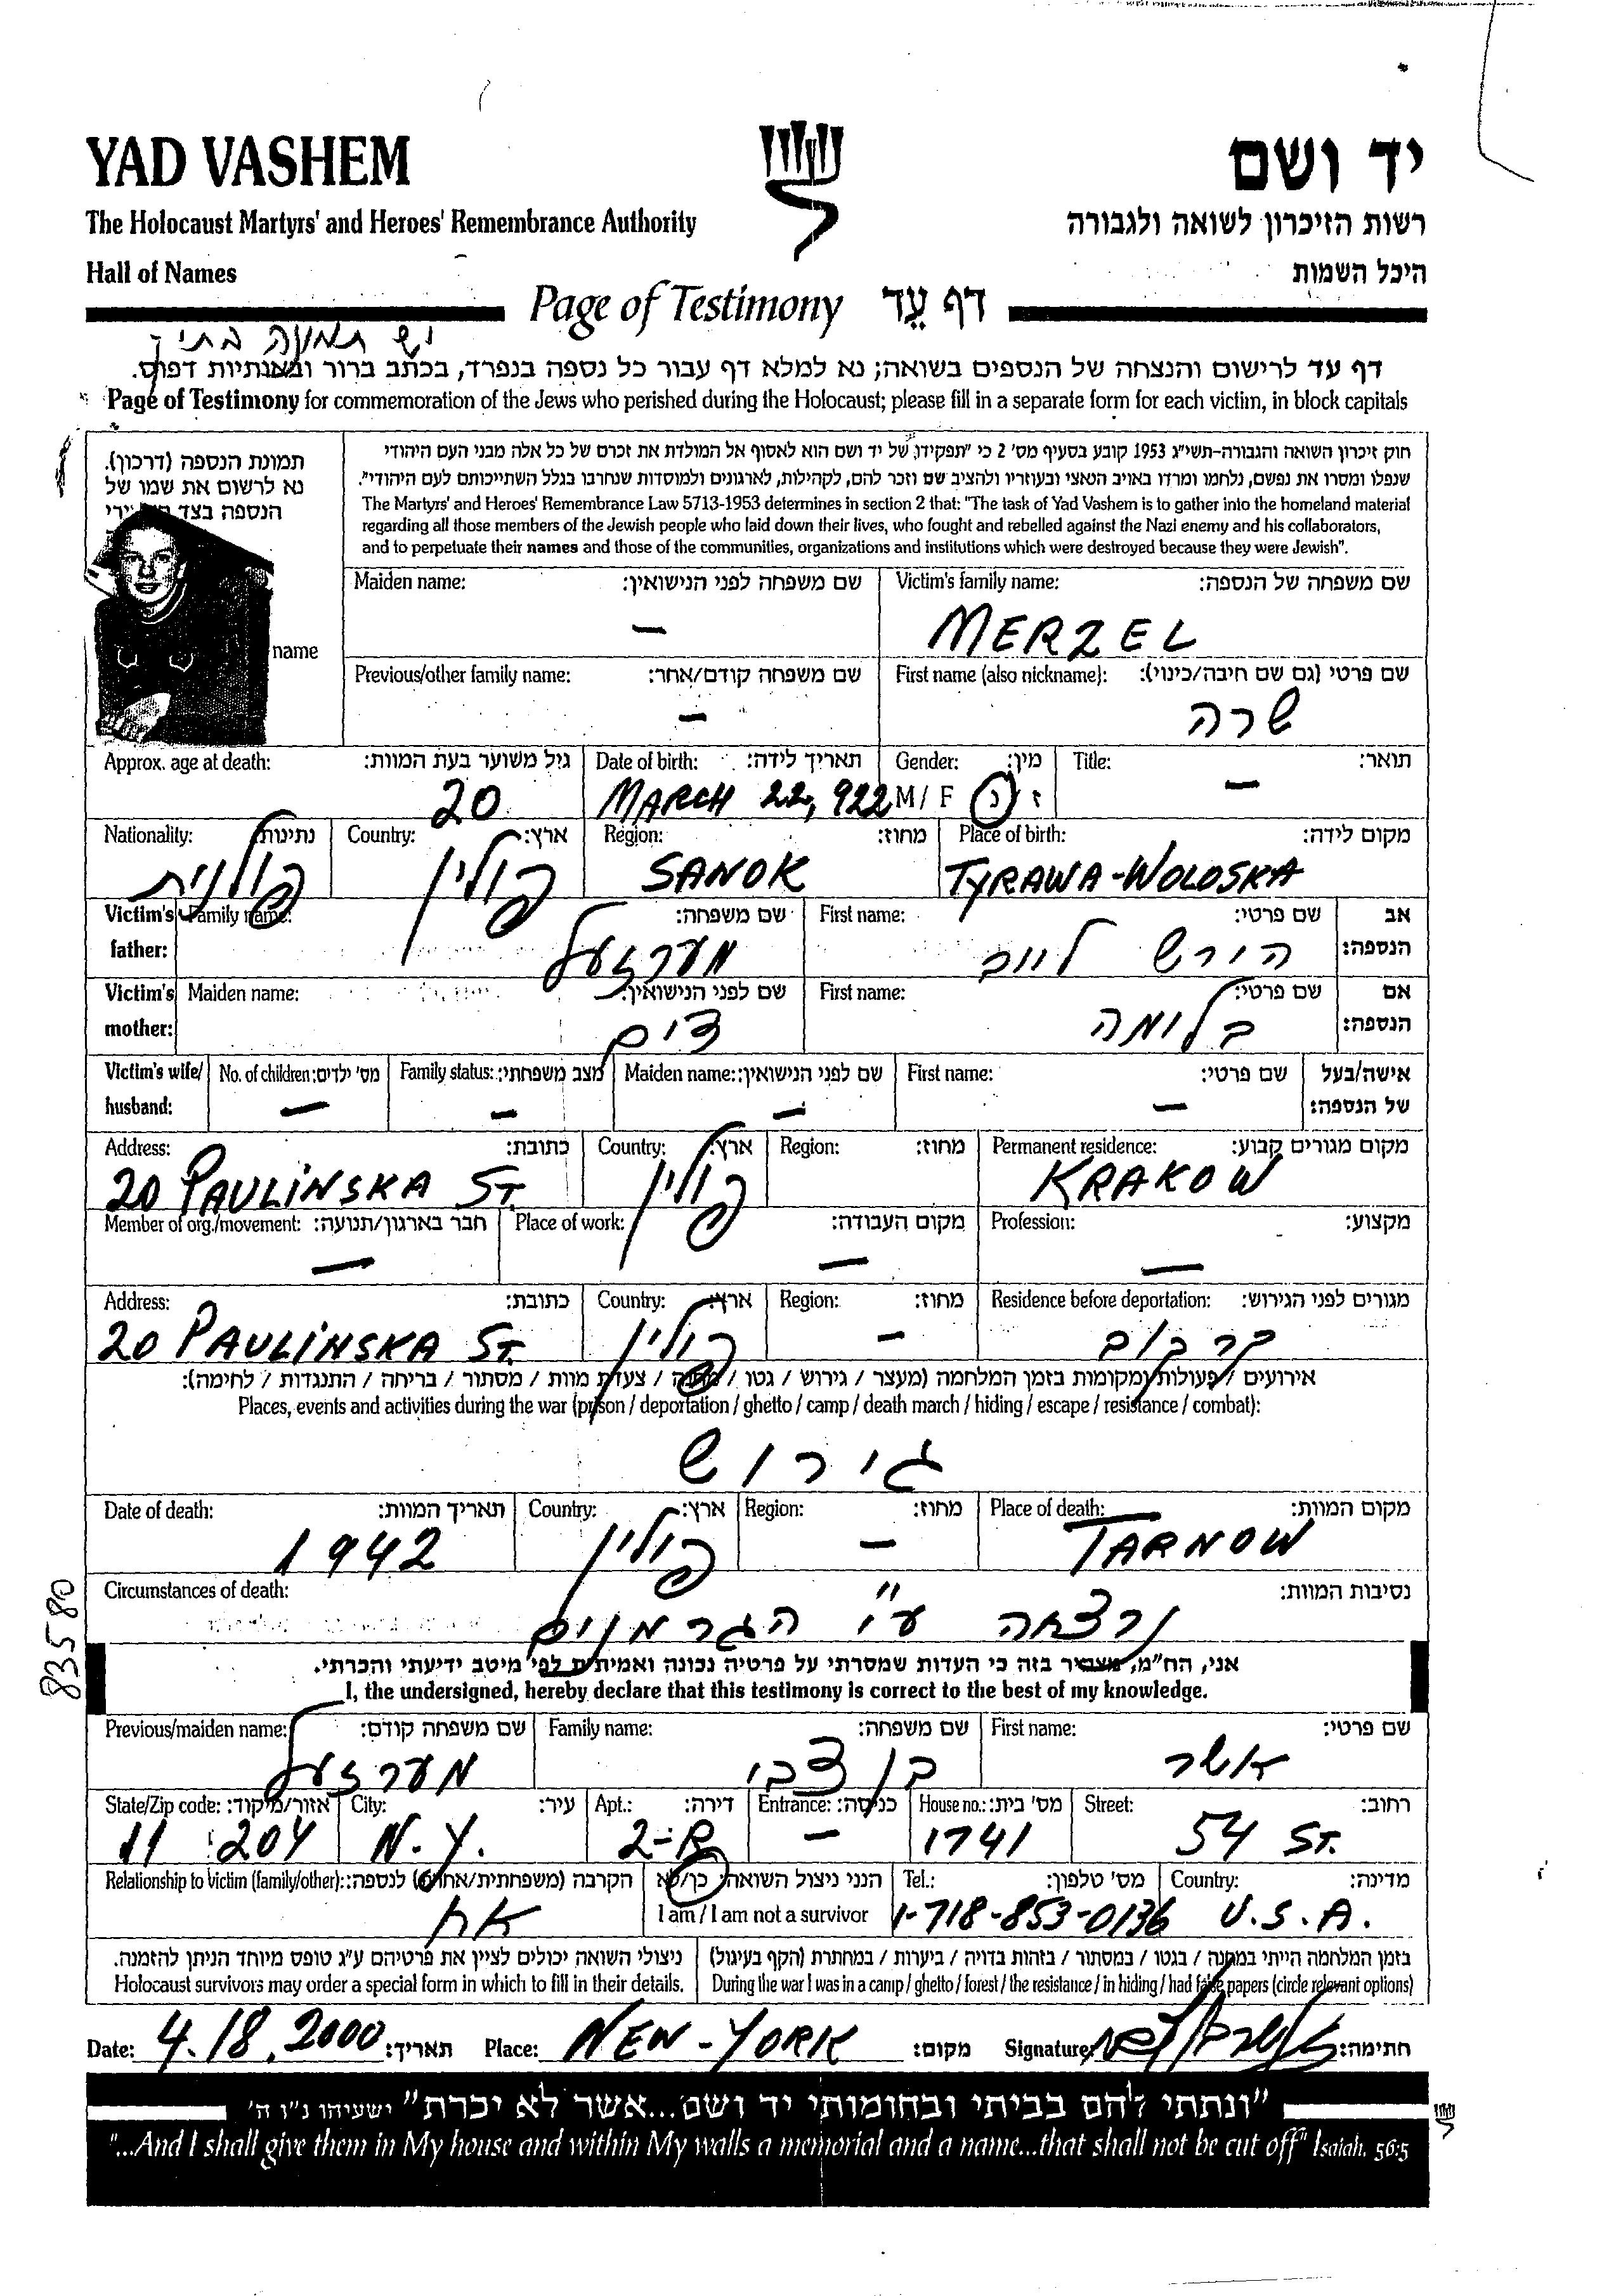 YAD VASHEM
יד ושם
The Holocaust Martyrs' and Heroes' Remembrance Authority
רשות הזיכרון לשואה ולגבורה
Hall of Names
היכל השמות
Page of Testimony דף עֵד
יש תמונה בתיק
דף עד לרישום והנצחה של הנספים בשואה; נא למלא דף עבור כל נספה בנפרד, בכתב ברור ובאותיות דפוס.
Page of Testimony for commemoration of the Jews who perished during the Holocaust; please fill in a separate form for each victim, in block capitals
תמונת הנספה (דרכון).
נא לרשום את שמו של
הנספה בצד
name
חוק זיכרון השואה והגבורה-תשי"ג 1953 קובע בסעיף מס' 2 כי "תפקידו של יד ושם הוא לאסוף אל המולדת את זכרם של כל אלה מבני העם היהודי
שנפלו ומסרו את נפשם, נלחמו ומרדו באויב הנאצי ובעוזריו ולהציב שם וזכר להם, לקהילות, לארגונים ולמוסדות שנחרבו בגלל השתייכותם לעם היהודי".
The Martyrs' and Heroes' Remembrance Law 5713-1953 determines in section 2 that: "The task of Yad Vashem is to gather into the homeland material
regarding all those members of the Jewish people who laid down their lives, who fought and rebelled against the Nazi enemy and his collaborators,
and to perpetuate their names and those of the communities, organizations and institutions which were destroyed because they were Jewish".
Maiden name: שם משפחה לפני הנישואין: Victim's family name: שם משפחה של הנספה:
– MERZEL
Previous/other family name: שם משפחה קודם/אחר: First name (also nickname): שם פרטי (גם שם חיבה/כינוי):
– שרה
Approx. age at death: גיל משוער בעת המוות: Date of birth: תאריך לידה: Gender: מין: Title: תואר:
20 MARCH 22, 922 M/ F נ / ז –
Nationality: נתינות: Country: ארץ: Region: מחוז: Place of birth: מקום לידה:
פולנית פולין SANOK TYRAWA-WOLOSKA
Victim's father: Family name: שם משפחה: First name: שם פרטי: אב הנספה:
מערזעל הירש לייב
Victim's mother: Maiden name: שם לפני הנישואין: First name: שם פרטי: אם הנספה:
צים בלומה
Victim's wife/ husband: No. of children: מס' ילדים: Family status: מצב משפחתי: Maiden name: שם לפני הנישואין: First name: שם פרטי: אישה/בעל של הנספה:
– – – –
Address: כתובת: Country: ארץ: Region: מחוז: Permanent residence: מקום מגורים קבוע:
20 PAULINSKA ST. פולין KRAKOW
Member of org./movement: חבר בארגון/תנועה: Place of work: מקום העבודה: Profession: מקצוע:
– – –
Address: כתובת: Country: ארץ: Region: מחוז: Residence before deportation: מגורים לפני הגירוש:
20 PAULINSKA ST. פולין – קרקוב
אירועים / פעולות ומקומות בזמן המלחמה (מעצר / גירוש / גטו / מחנה / צעדת מוות / מסתור / בריחה / התנגדות / לחימה):
Places, events and activities during the war (prison / deportation / ghetto / camp / death march / hiding / escape / resistance / combat):
גירוש
Date of death: תאריך המוות: Country: ארץ: Region: מחוז: Place of death: מקום המוות:
1942 פולין – TARNOW
Circumstances of death: נסיבות המוות:
נרצחה ע"י הגרמנים
835 80
אני, הח"מ, מצהיר בזה כי העדות שמסרתי על פרטיה נכונה ואמיתית לפי מיטב ידיעתי והכרתי.
I, the undersigned, hereby declare that this testimony is correct to the best of my knowledge.
Previous/maiden name: שם משפחה קודם: Family name: שם משפחה: First name: שם פרטי:
מערזעל בן צבי אשר
State/Zip code: אזור/מיקוד: City: עיר: Apt.: דירה: Entrance: כניסה: House no.: מס' בית: Street: רחוב:
11 204 N.Y. 2-R – 1741 54 ST.
Relationship to victim (family/other): הקרבה (משפחתית/אחרת) לנספה: הנני ניצול השואה: כן/לא Tel.: מס' טלפון: Country: מדינה:
אח I am / I am not a survivor 1-718-853-0136 U.S.A.
ניצולי השואה יכולים לציין את פרטיהם ע"ג טופס מיוחד הניתן להזמנה. בזמן המלחמה הייתי במחנה / בגטו / במסתור / בזהות בדויה / ביערות / במחתרת (הקף בעיגול)
Holocaust survivors may order a special form in which to fill in their details. During the war I was in a camp / ghetto / forest / the resistance / in hiding / had false papers (circle relevant options)
Date: 4.18.2000 תאריך: Place: NEW-YORK מקום: Signature: חתימה:
"ונתתי להם בביתי ובחומותי יד ושם...אשר לא יכרת" ישעיהו נ"ו ה'
"...And I shall give them in My house and within My walls a memorial and a name...that shall not be cut off" Isaiah, 56:5